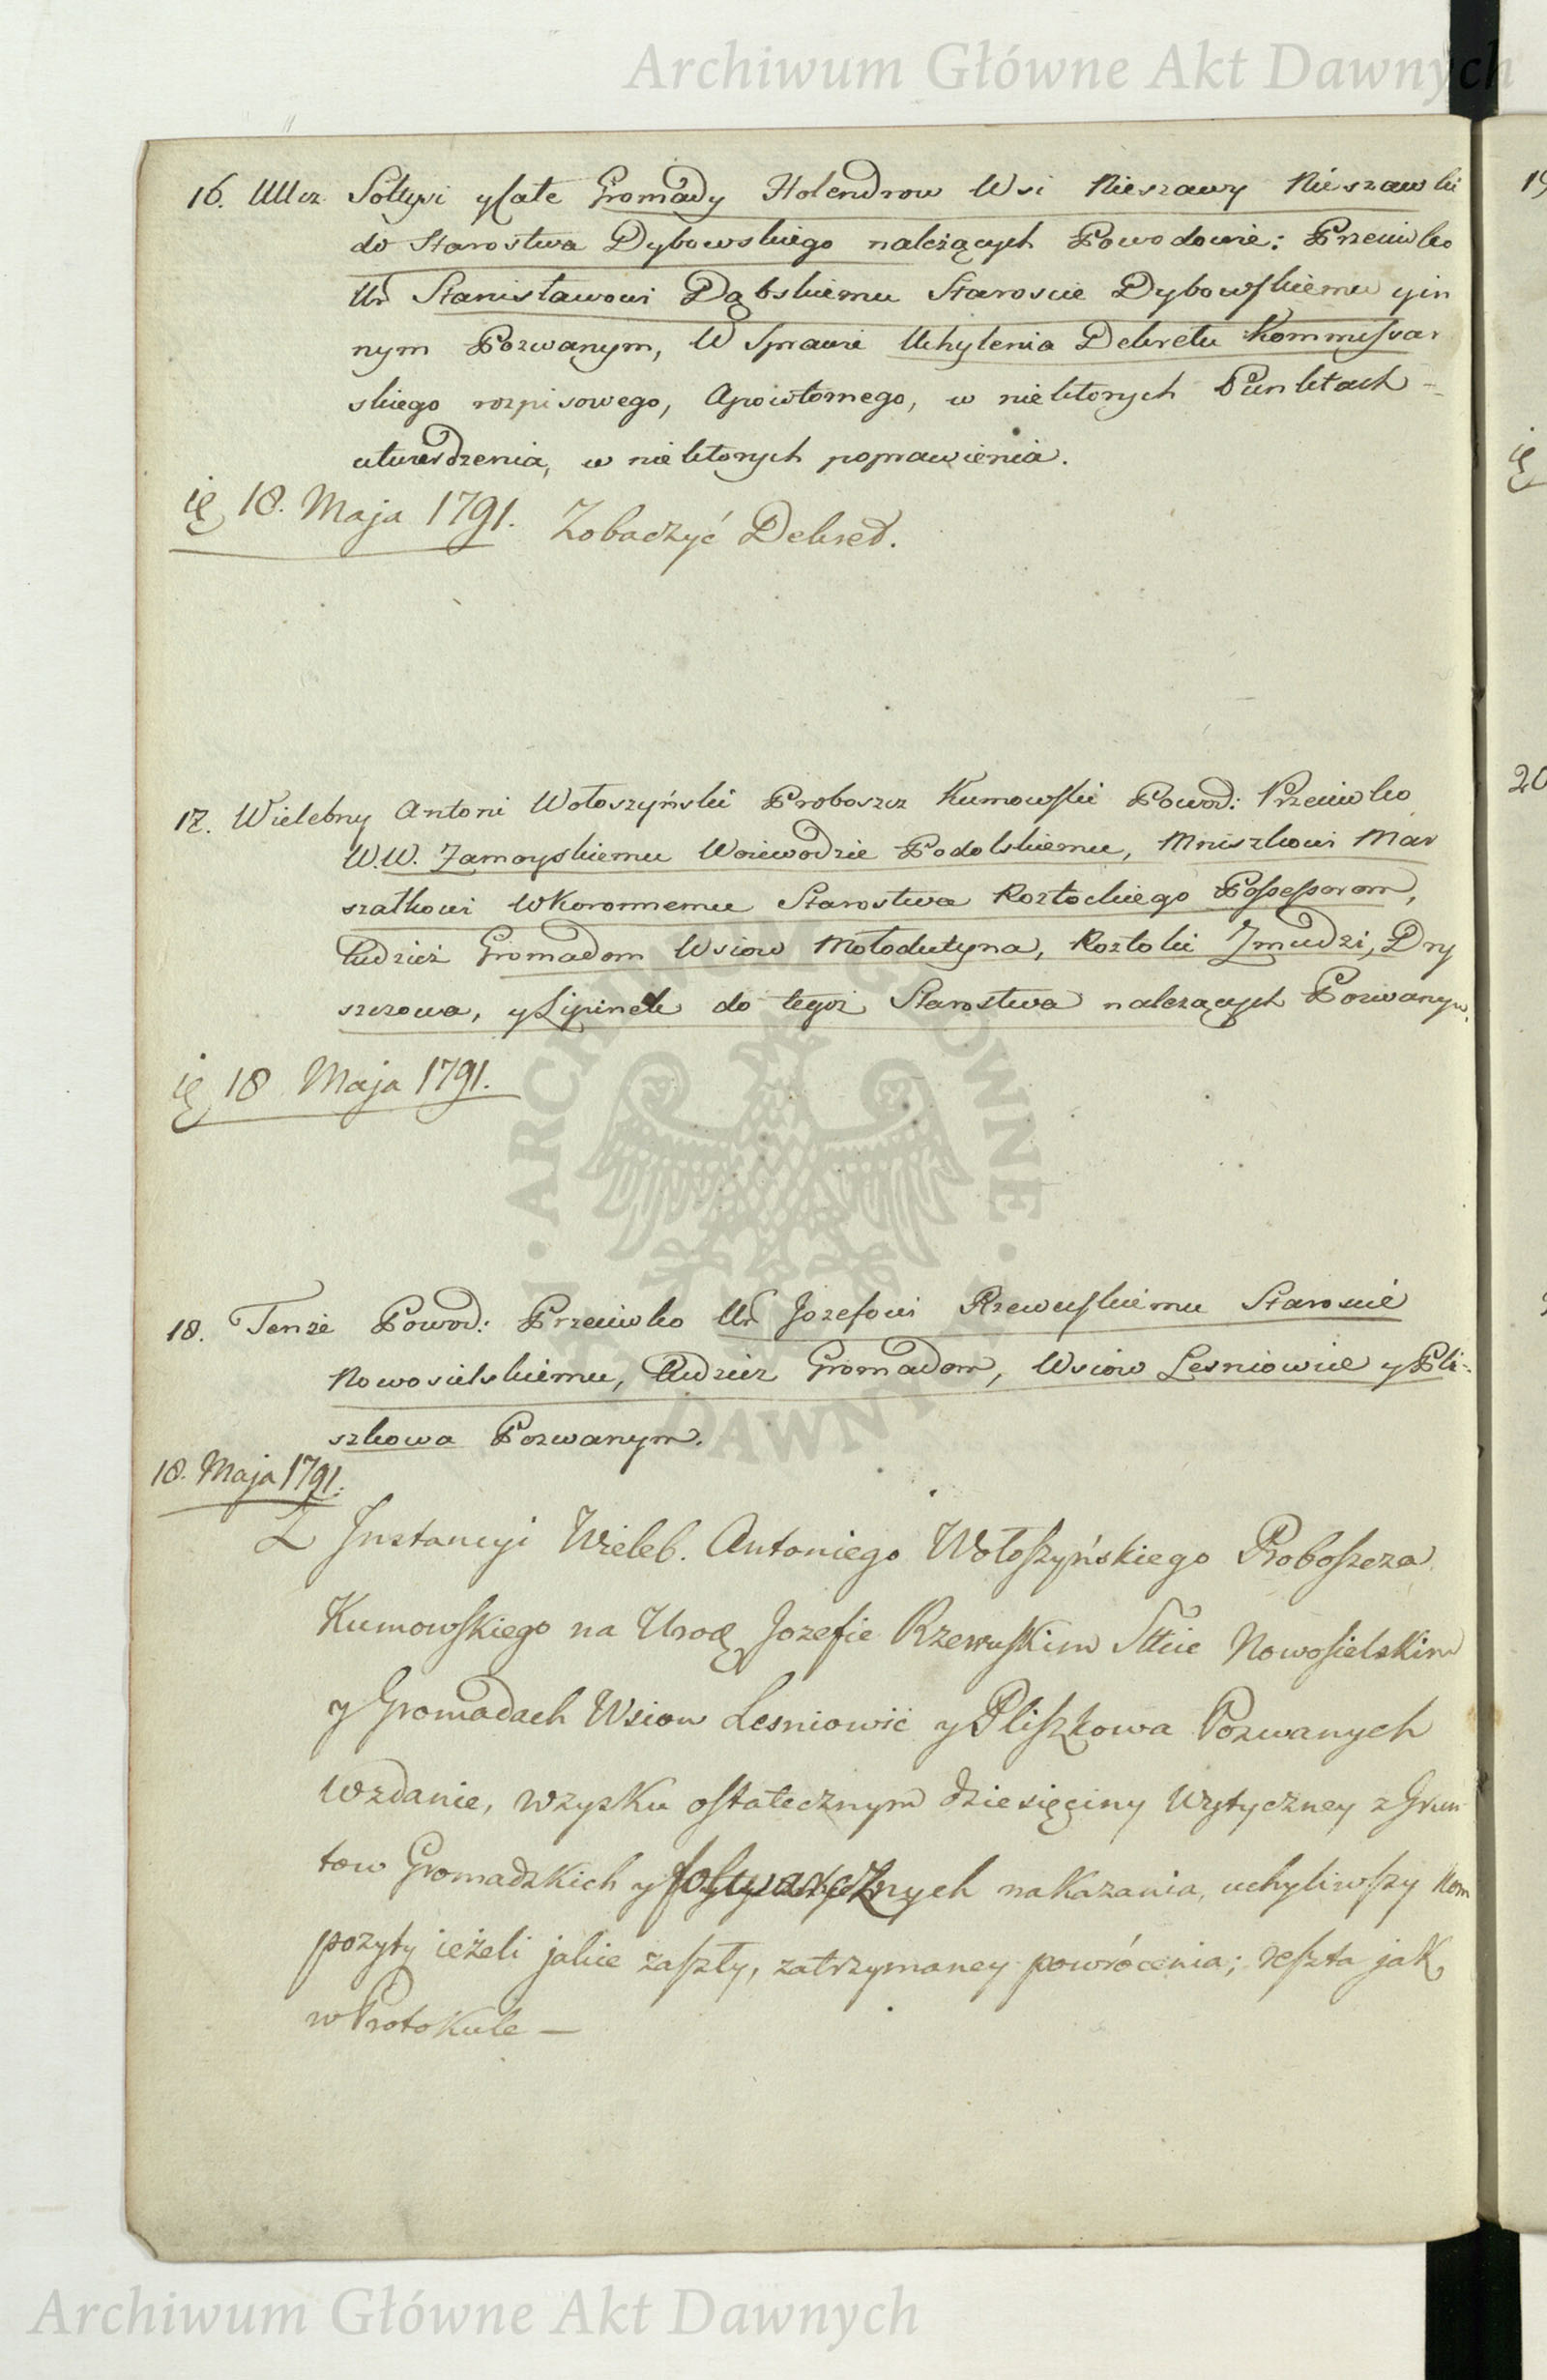 Archiwum Główne Akt Dawnych
16. UUcz Sołtysi y Całe Gromady Holendrow Wsi Nieszawy Nieszawki
do Starostwa Dybowskiego należących Powodowie: Przeciwko
Ur Stanisławowi Dąbskiemu Staroscie Dybowskiemu y in
nym Pozwanym, W Sprawie Uchylenia Dekretu Kommissar
skiego rozpisowego, w niektorych Punktach -
utwierdzenia, w niektorych poprawienia.
18. Maja 1791. Zobaczyć Dekret.
17. Wielebny Antoni Wołoszyński Proboszcz Kumowski Powod: Przeciwko
W.W. Zamoyskiemu Woiewodzie Podolskiemu, Mniszkowi Mar
szałkowi WKoronnemu Starostwa Rozłockiego Possessorom,
tudzież Gromadom Wsiow Mołodutyna, Roztoki Zmudzi, Dry
szczowa, y Lipinek do tegoż Starostwa należących Pozwanym.
18 Maja 1791.
ARCHIWUM GŁÓWNE AKT DAWNYCH
18. Tenże Powod: Przeciwko Ur Jozefowi Rzewuskiemu Staroscie
Nowosielskiemu, tudzież Gromadom, Wsiow Lesniowic y Pli-
szkowa Pozwanym.
18. Maja 1791.
Z Jnstancyi Wieleb. Antoniego Wołoszyńskiego Proboszcza
Kumowskiego na Urodę Jozefie Rzewuskim Stcie Nowosielskim
y Gromadach Wsiow Lesniowic y Pliszkowa Pozwanych
Wzdanie, wzysku ostatecznym dziesięciny Wytyczney z Grun
tow Gromadzkich y folwarcznych nakazania, uchyliwszy Kom
pozyty ieżeli jakie zaszły, zatrzymaney powrócenia; reszta jak
w Protokule —
19
20
Archiwum Główne Akt Dawnych